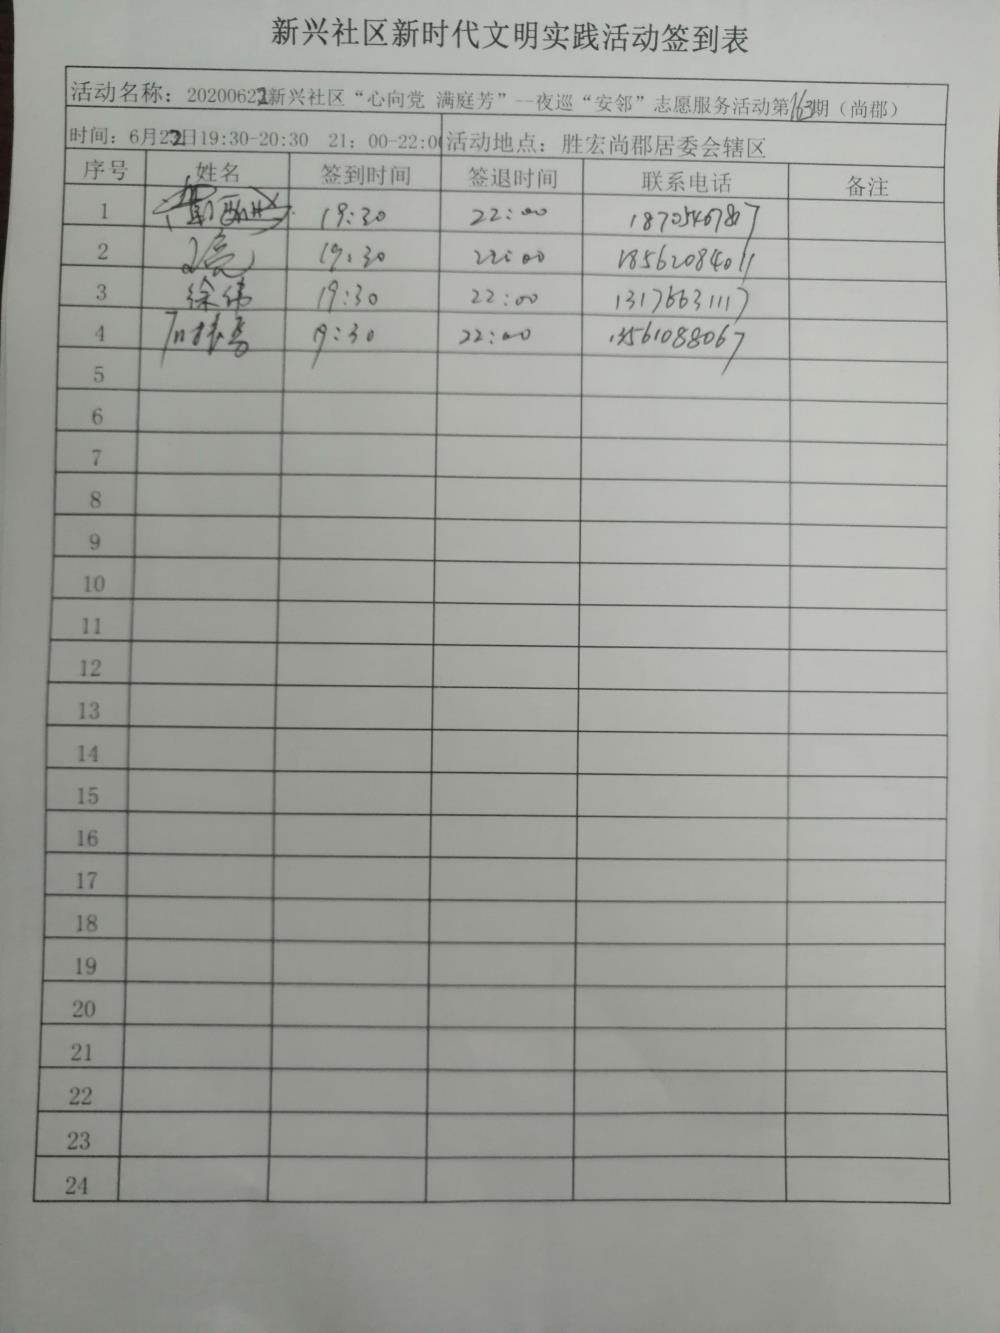 新兴社区新时代文明实践活动签到表
活动名称：20200622新兴社区“心向党 满庭芳”--夜巡“安邻”志愿服务活动第163期（尚郡）
时间：6月22日19:30-20:30 21：00-22:00 活动地点：胜宏尚郡居委会辖区
序号 姓名 签到时间 签退时间 联系电话 备注
1 19:30 22:00
2 19:30 22:00 18562084011
3 徐伟 19:30 22:00 13176631117
4 19:30 22:00 13561088067
5
6
7
8
9
10
11
12
13
14
15
16
17
18
19
20
21
22
23
24